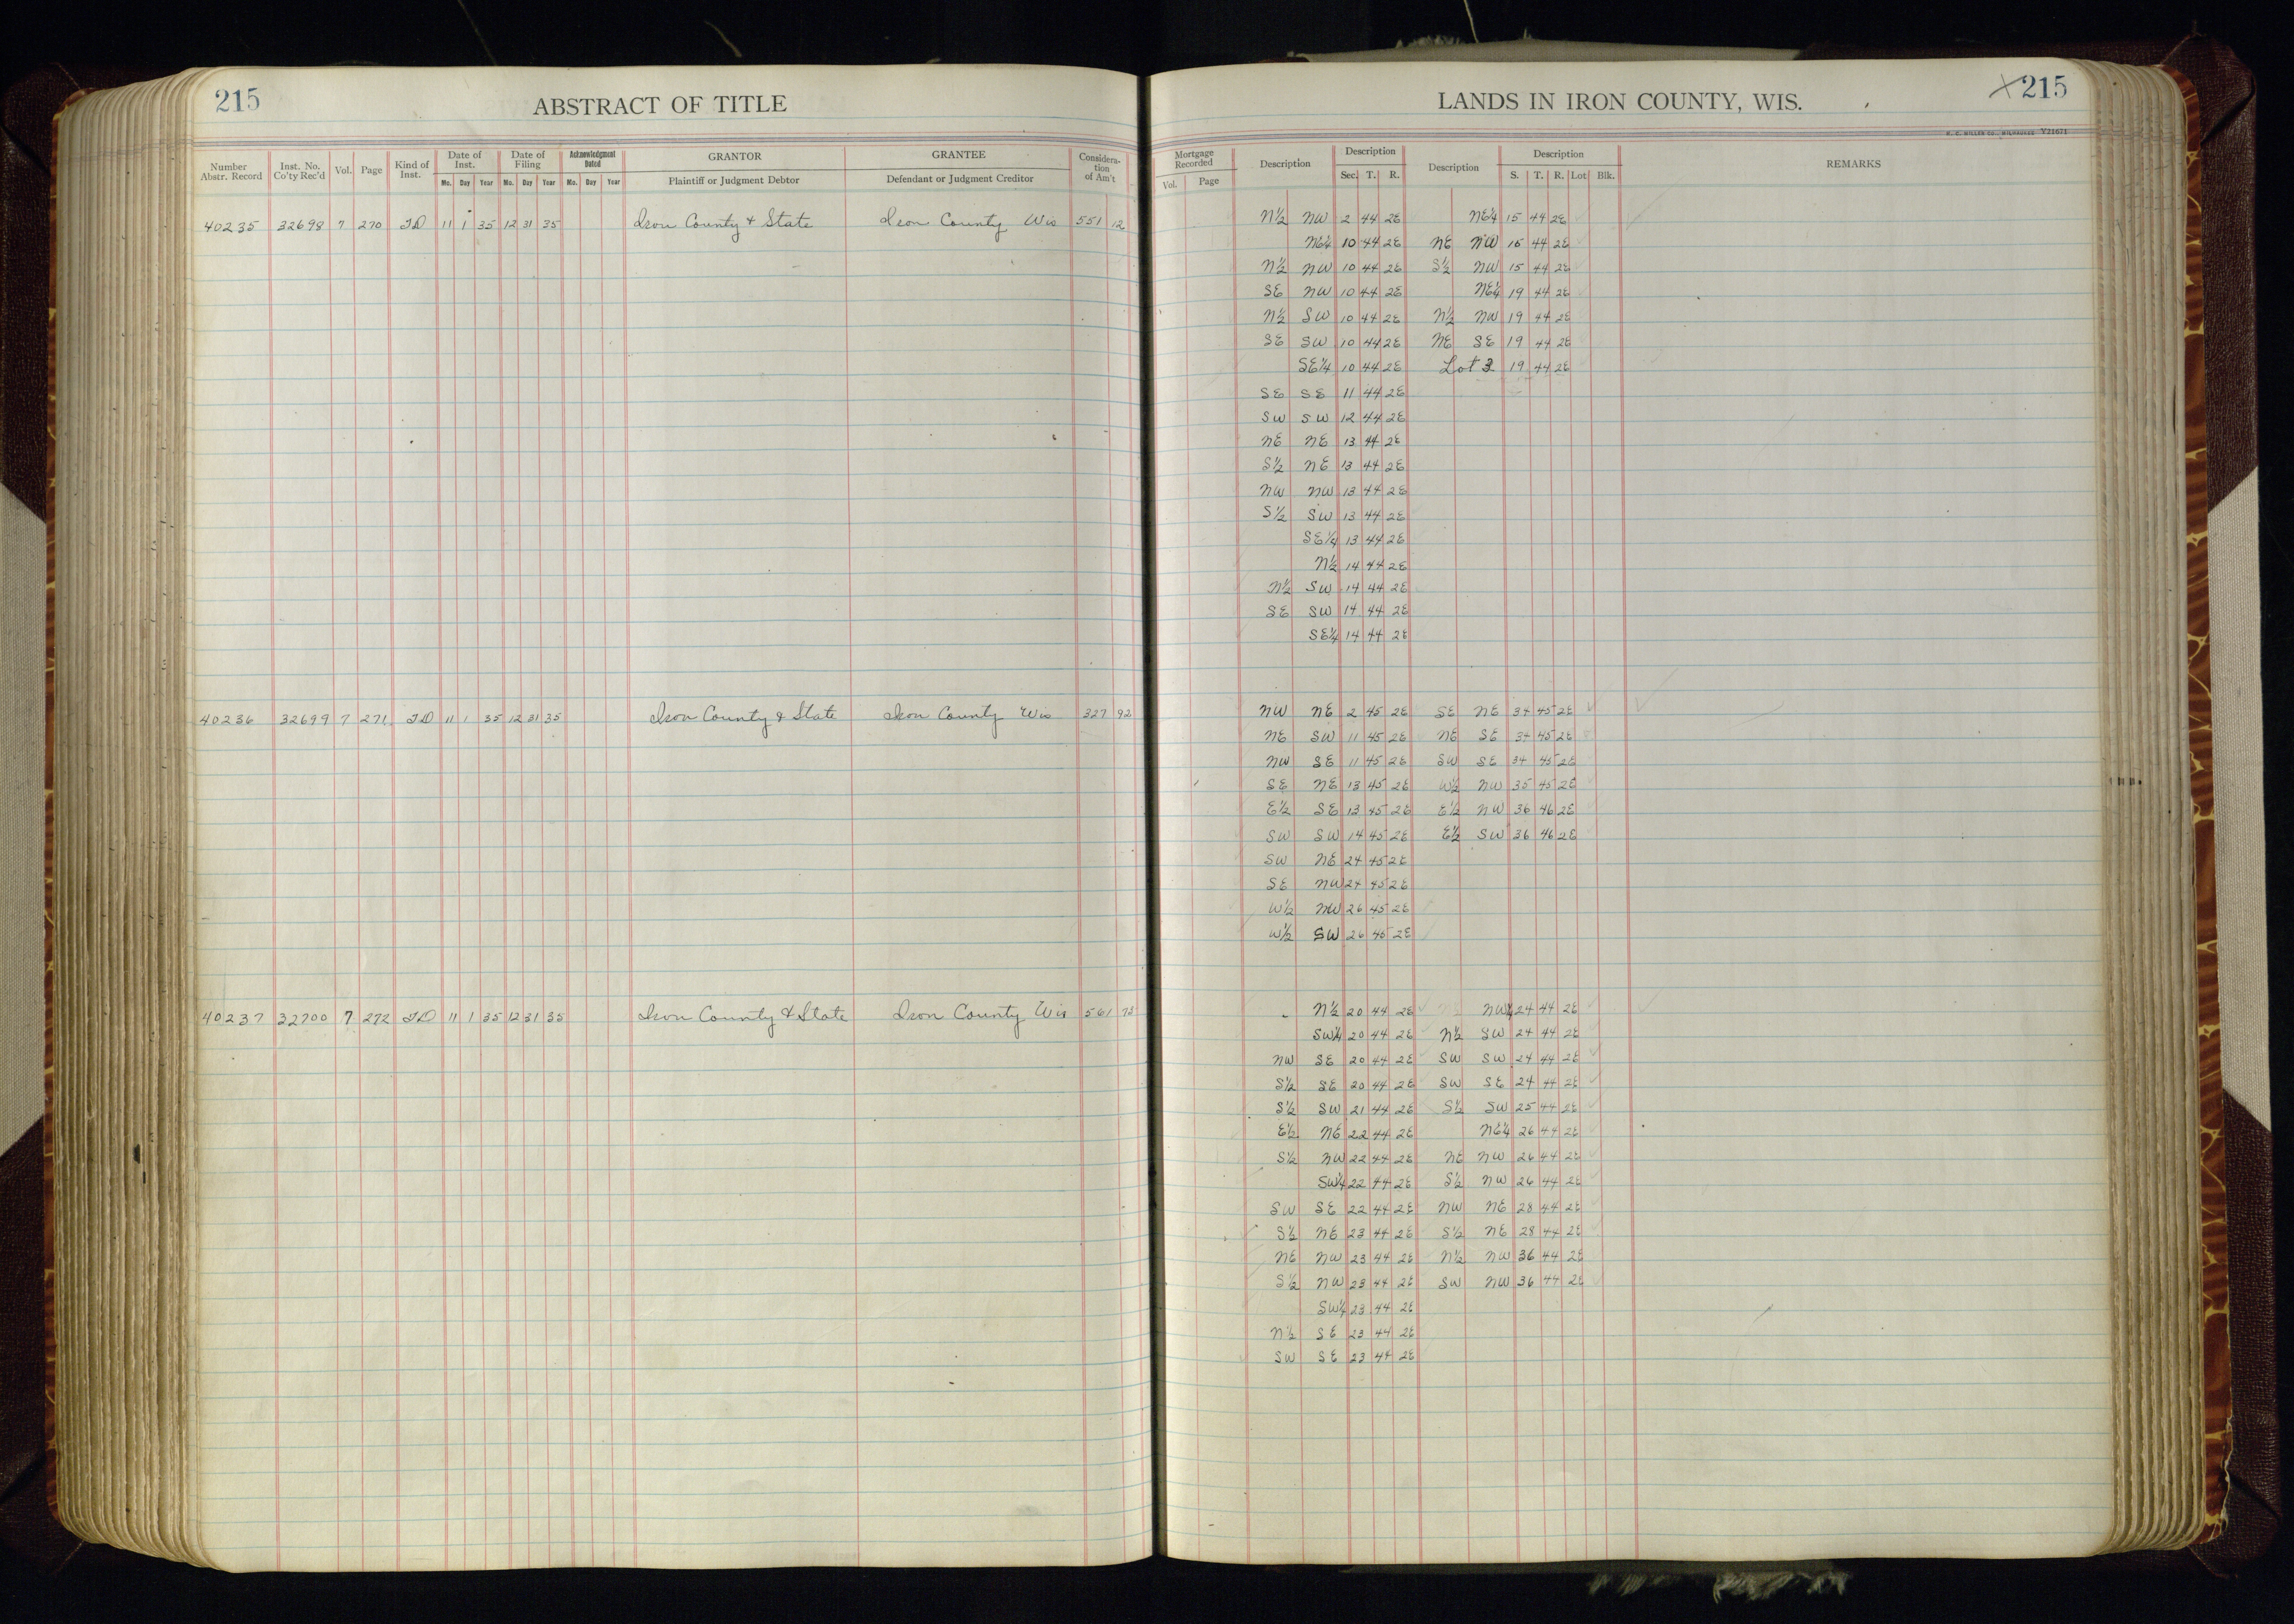 215
ABSTRACT OF TITLE
LANDS IN IRON COUNTY, WIS.
215
H. C. MILLER CO., MILWAUKEE V21671
Number Abstr. Record | Inst. No. Co'ty Rec'd | Vol. | Page | Kind of Inst. | Date of Inst. Mo. Day Year | Date of Filing Mo. Day Year | Acknowledgment Dated Mo. Day Year | GRANTOR Plaintiff or Judgment Debtor | GRANTEE Defendant or Judgment Creditor | Considera-tion of Am't | Mortgage Recorded Vol. Page | Description | Description Sec. T. R. | Description | Description S. T. R. Lot Blk. | REMARKS
40235 32698 7 270 TD 11 1 35 12 31 35 Iron County & State Iron County Wis 551 12 N½ NW 2 44 2E NE¼ 15 44 2E
NE¼ 10 44 2E NE NW 15 44 2E
N½ NW 10 44 2E S½ NW 15 44 2E
SE NW 10 44 2E NE¼ 19 44 2E
N½ SW 10 44 2E N½ NW 19 44 2E
SE SW 10 44 2E NE SE 19 44 2E
SE¼ 10 44 2E Lot 3 19 44 2E
SE SE 11 44 2E
SW SW 12 44 2E
NE NE 13 44 2E
S½ NE 13 44 2E
NW NW 13 44 2E
S½ SW 13 44 2E
SE¼ 13 44 2E
N½ 14 44 2E
N½ SW 14 44 2E
SE SW 14 44 2E
SE¼ 14 44 2E
40236 32699 7 271 TD 11 1 35 12 31 35 Iron County & State Iron County Wis 327 92 NW NE 2 45 2E SE NE 34 45 2E
NE SW 11 45 2E NE SE 34 45 2E
NW SE 11 45 2E SW SE 34 45 2E
SE NE 13 45 2E W½ NW 35 45 2E
E½ SE 13 45 2E E½ NW 36 46 2E
SW SW 14 45 2E E½ SW 36 46 2E
SW NE 24 45 2E
SE NW 24 45 2E
W½ NW 26 45 2E
W½ SW 26 45 2E
40237 32700 7 272 TD 11 1 35 12 31 35 Iron County & State Iron County Wis 561 73 N½ 20 44 2E NW¼ 24 44 2E
SW¼ 20 44 2E N½ SW 24 44 2E
NW SE 20 44 2E SW SW 24 44 2E
S½ SE 20 44 2E SW SE 24 44 2E
S½ SW 21 44 2E S½ SW 25 44 2E
E½ NE 22 44 2E NE¼ 26 44 2E
S½ NW 22 44 2E NE NW 26 44 2E
SW¼ 22 44 2E S½ NW 26 44 2E
SW SE 22 44 2E NW NE 28 44 2E
S½ NE 23 44 2E S½ NE 28 44 2E
NE NW 23 44 2E N½ NW 36 44 2E
S½ NW 23 44 2E SW NW 36 44 2E
SW¼ 23 44 2E
N½ SE 23 44 2E
SW SE 23 44 2E